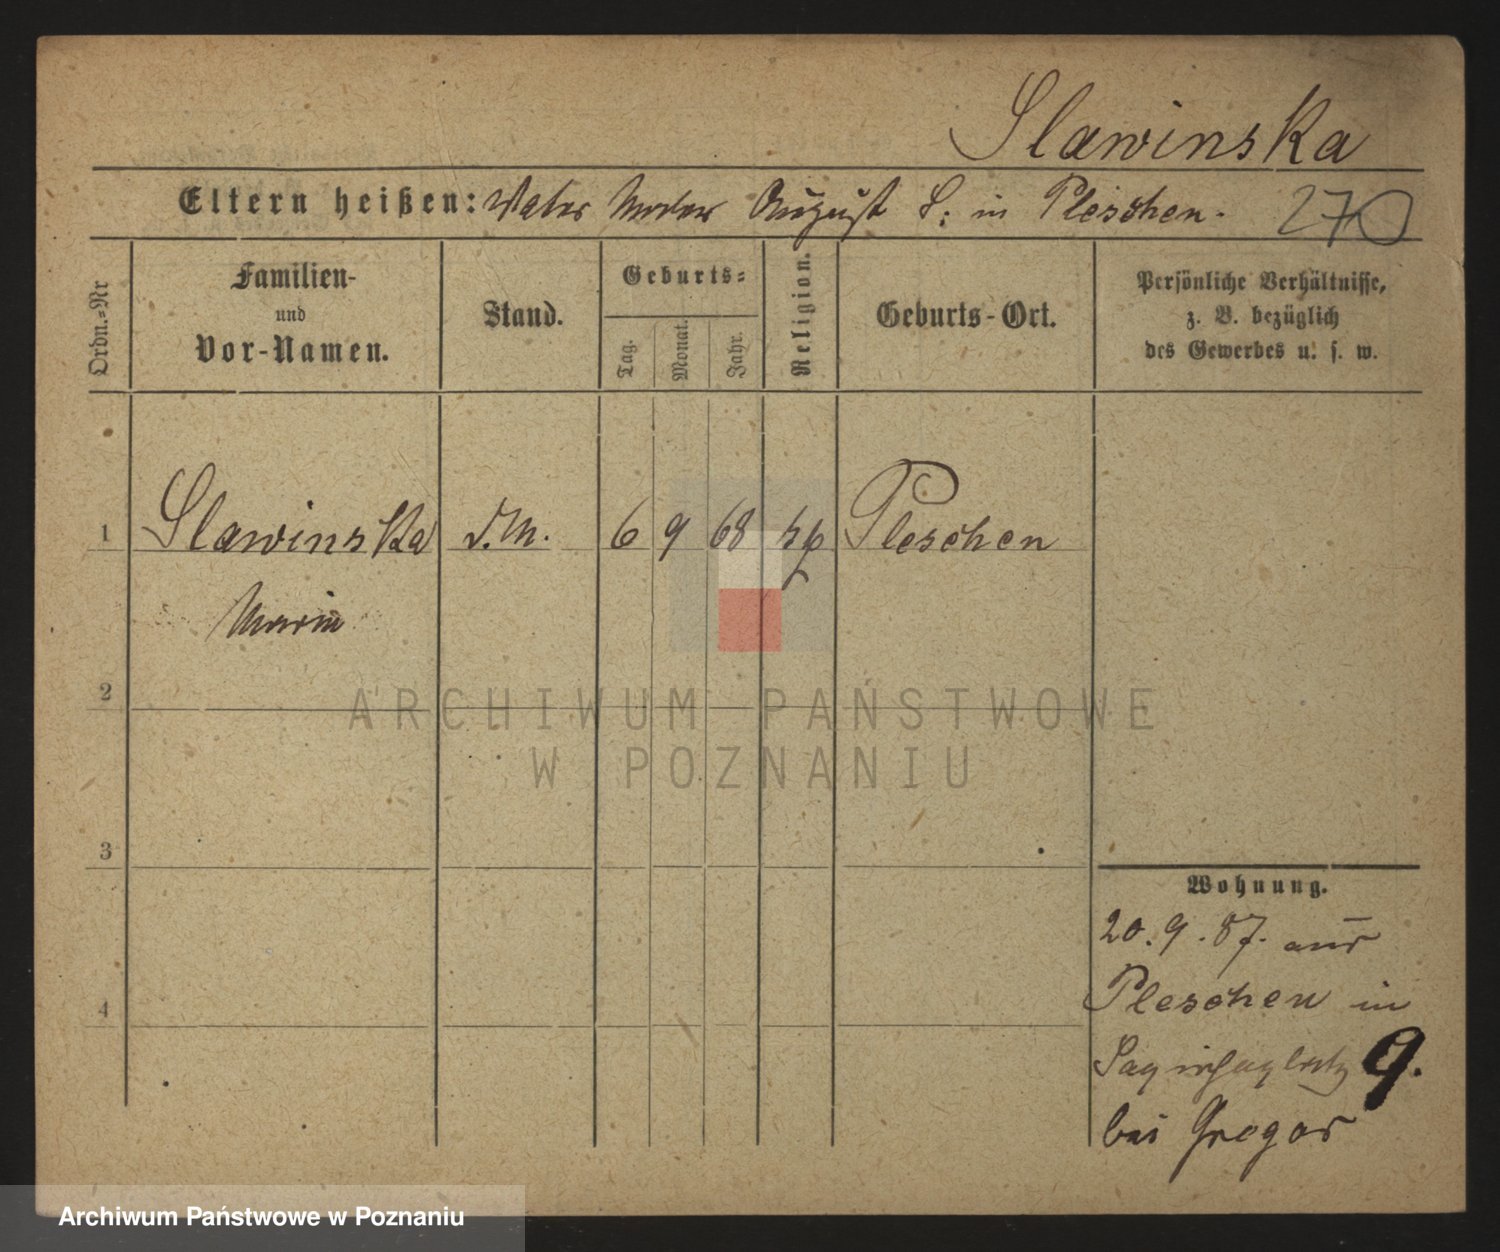 Slawinska
Eltern heißen: Vater August S: in Pleschen. 270
Ordn.-Nr
Familien-
und
Vor-Namen.
Stand.
Geburts-
Tag.
Monat.
Jahr.
Religion.
Geburts-Ort.
Persönliche Verhältnisse,
z. B. bezüglich
des Gewerbes u. s. w.
1 Slawinska D.M. 6 9 68 Pleschen
Marie
2
3
4
Wohnung.
20.9.87. aus
Pleschen in
9.
bei Gregor
ARCHIWUM PAŃSTWOWE
W POZNANIU
Archiwum Państwowe w Poznaniu